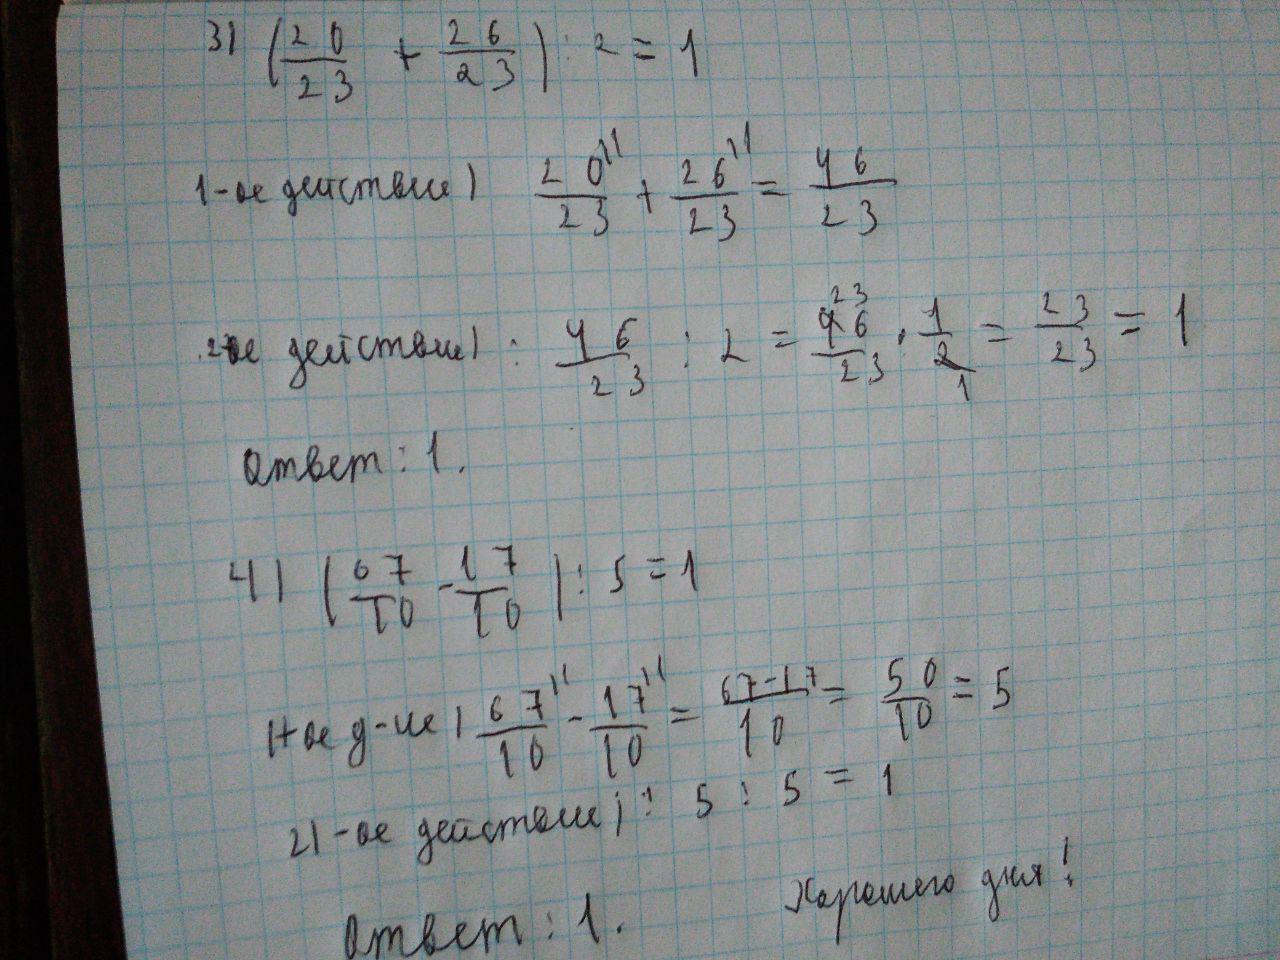 3) (20/23 + 26/23) : 2 = 1
1-ое действие) 20/23 + 26/23 = 46/23
2-ое действие) : 46/23 : 2 = 46/23 · 1/2 = 23/23 = 1
Ответ : 1.
4) (67/10 - 17/10) : 5 = 1
1-ое д-ие) 67/10 - 17/10 = 67-17/10 = 50/10 = 5
2)-ое действие) : 5 : 5 = 1
Хорошего дня!
Ответ : 1.